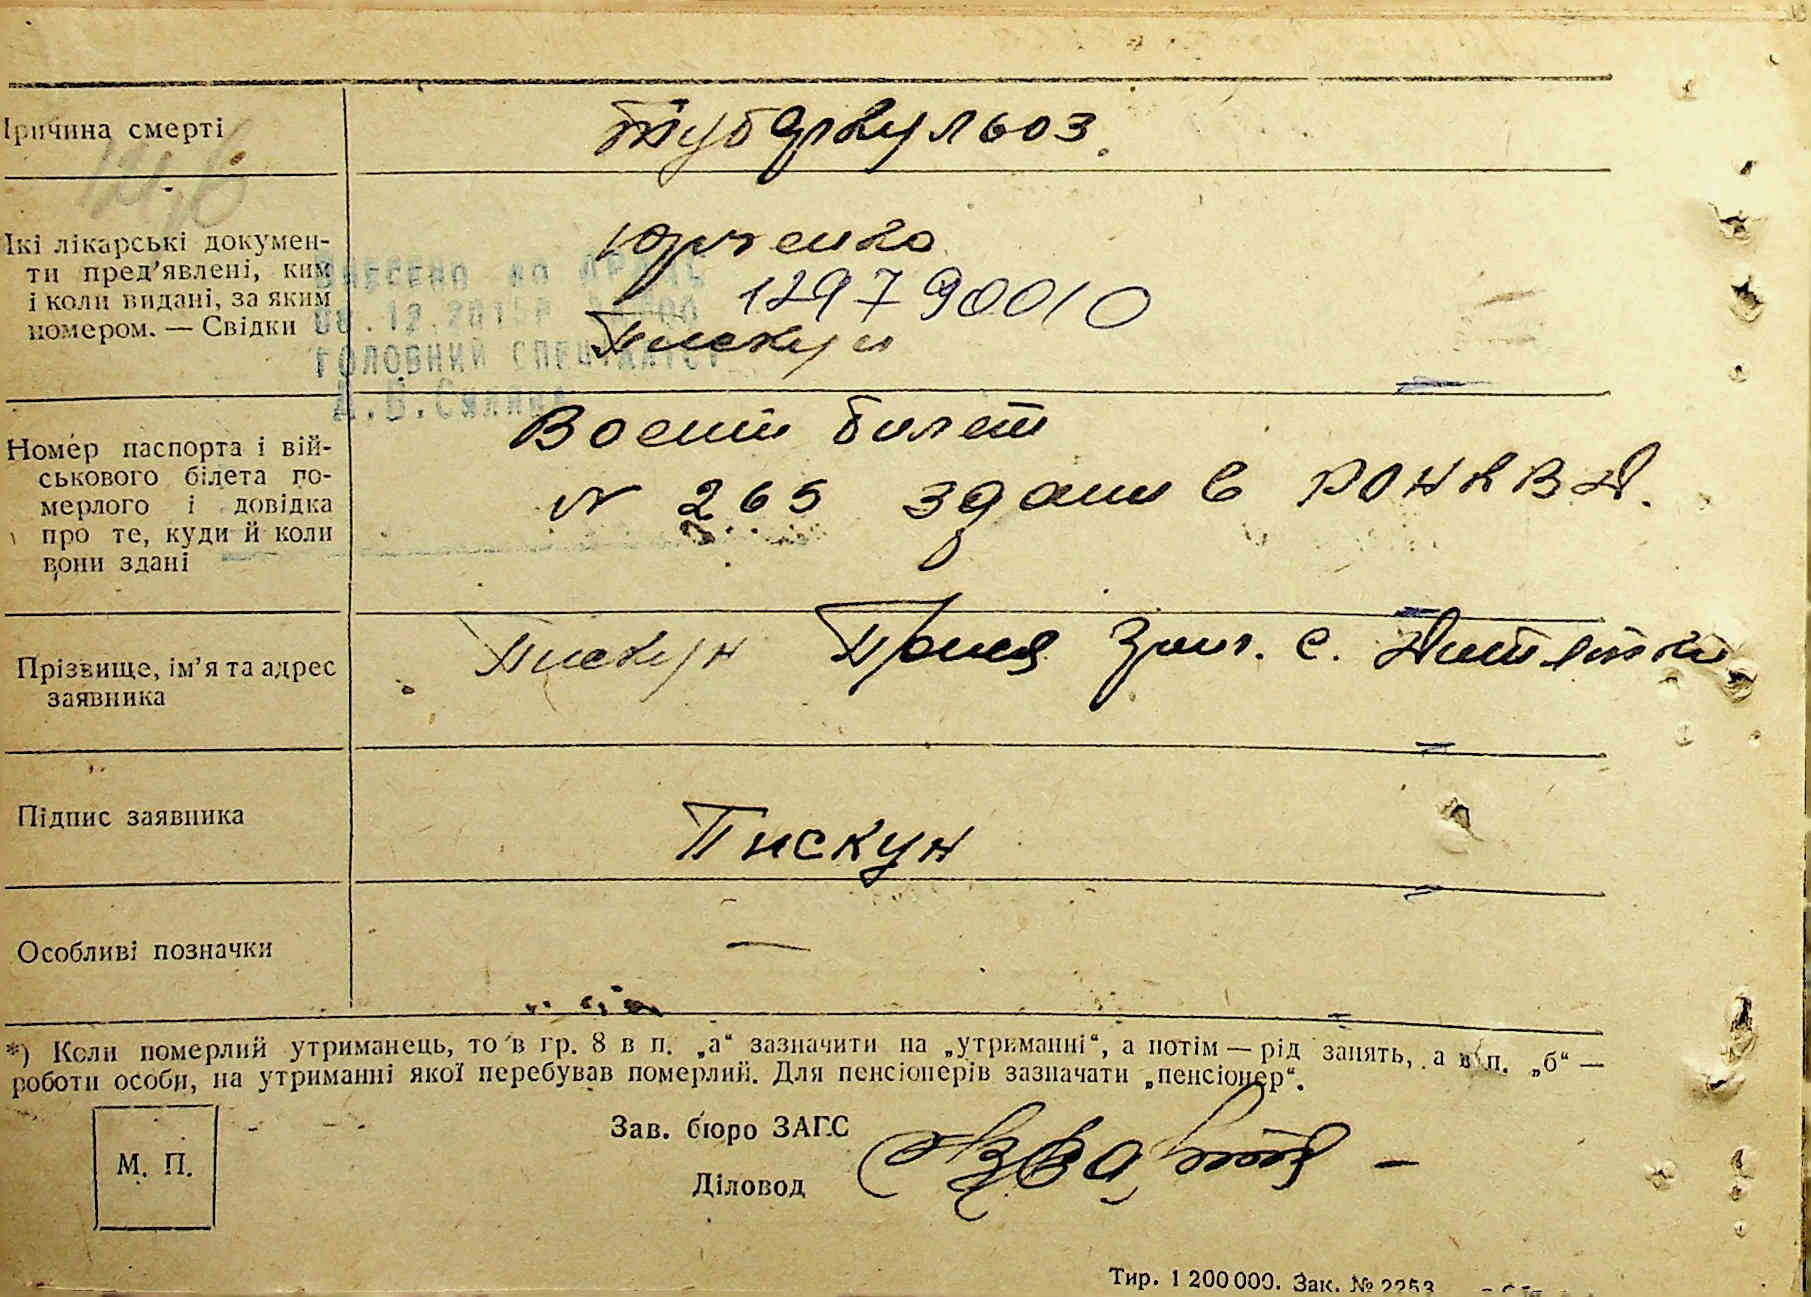 Причина смерті
Туберкульоз.
Які лікарські докумен-
ти пред'явлені, ким
і коли видані, за яким
номером. — Свідки
Юрченко
129790010
Пискун
Внесено до ДРАЦС
.12.201
головний спеціаліст
Номер паспорта і вій-
ськового білета по-
мерлого і довідка
про те, куди й коли
вони здані
Воений билет
№ 265 здани в РОНКВД.
Прізвище, ім'я та адрес
заявника
Пискун с.
Підпис заявника
Пискун
Особливі позначки
—
*) Коли померлий утриманець, то в гр. 8 в п. „а“ зазначити на „утриманні“, а потім — рід занять, а в п. „б“ —
роботи особи, на утриманні якої перебував померлий. Для пенсіонерів зазначати „пенсіонер“.
М. П.
Зав. бюро ЗАГС
Діловод
Тир. 1 200 000. Зак. № 2253